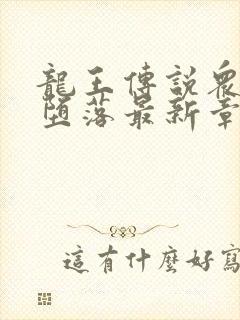 龍王傳說衆
墮落最新章
這有什麼好寫